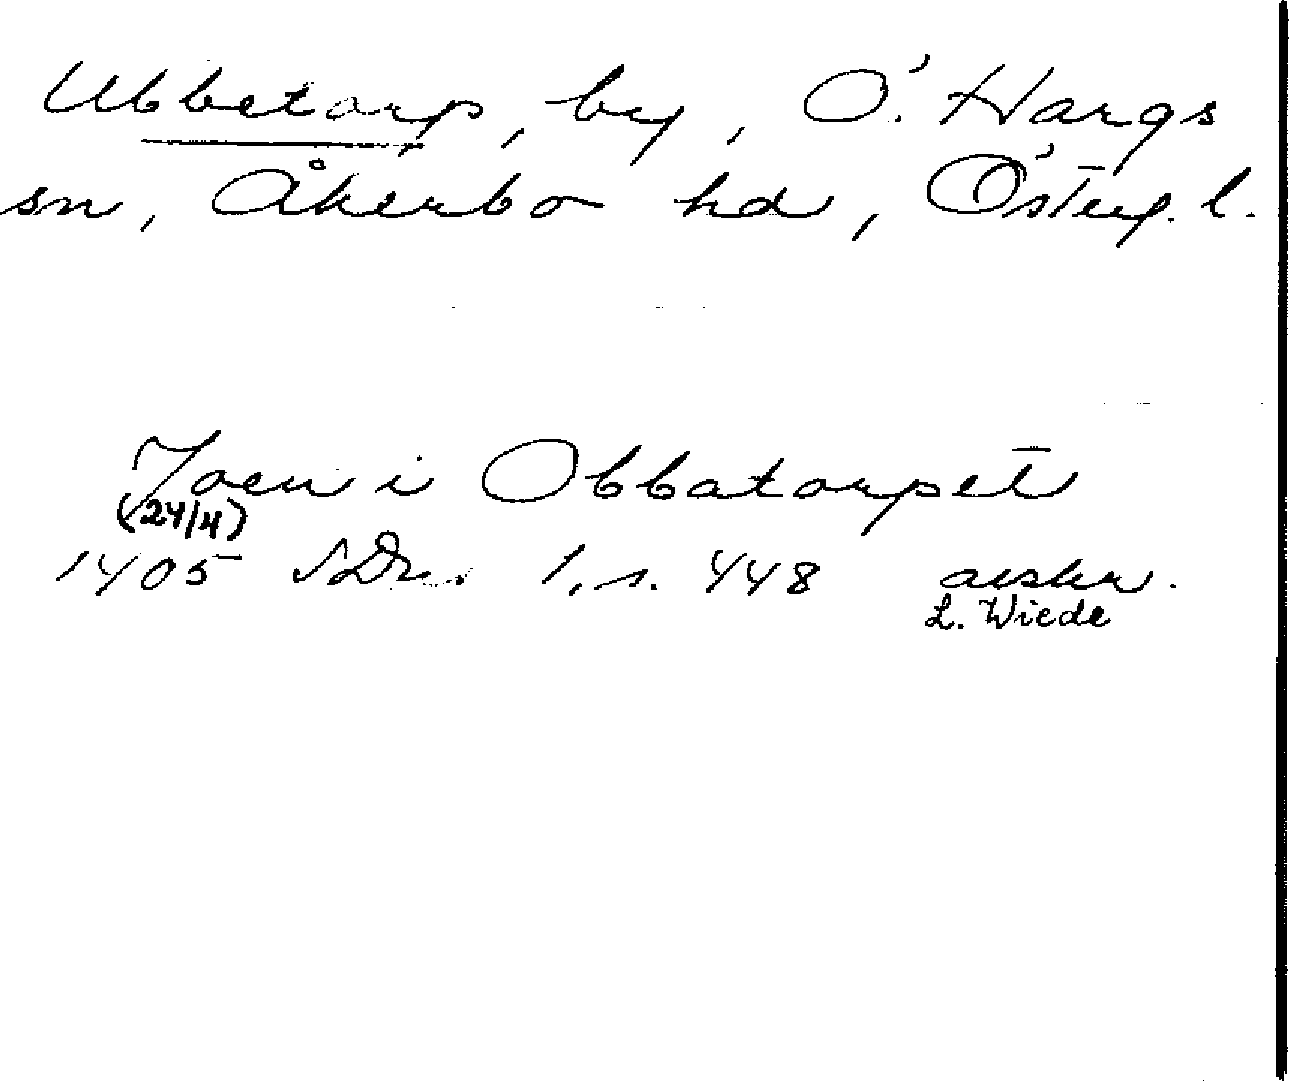 Ubbetorp, by, Ö. Hargs
sn, Åkerbo hd, Österg. l.
Joen i Obbatorpet
(24/4)
1405 SDns 1, s. 448 avskr.
L. Wiede